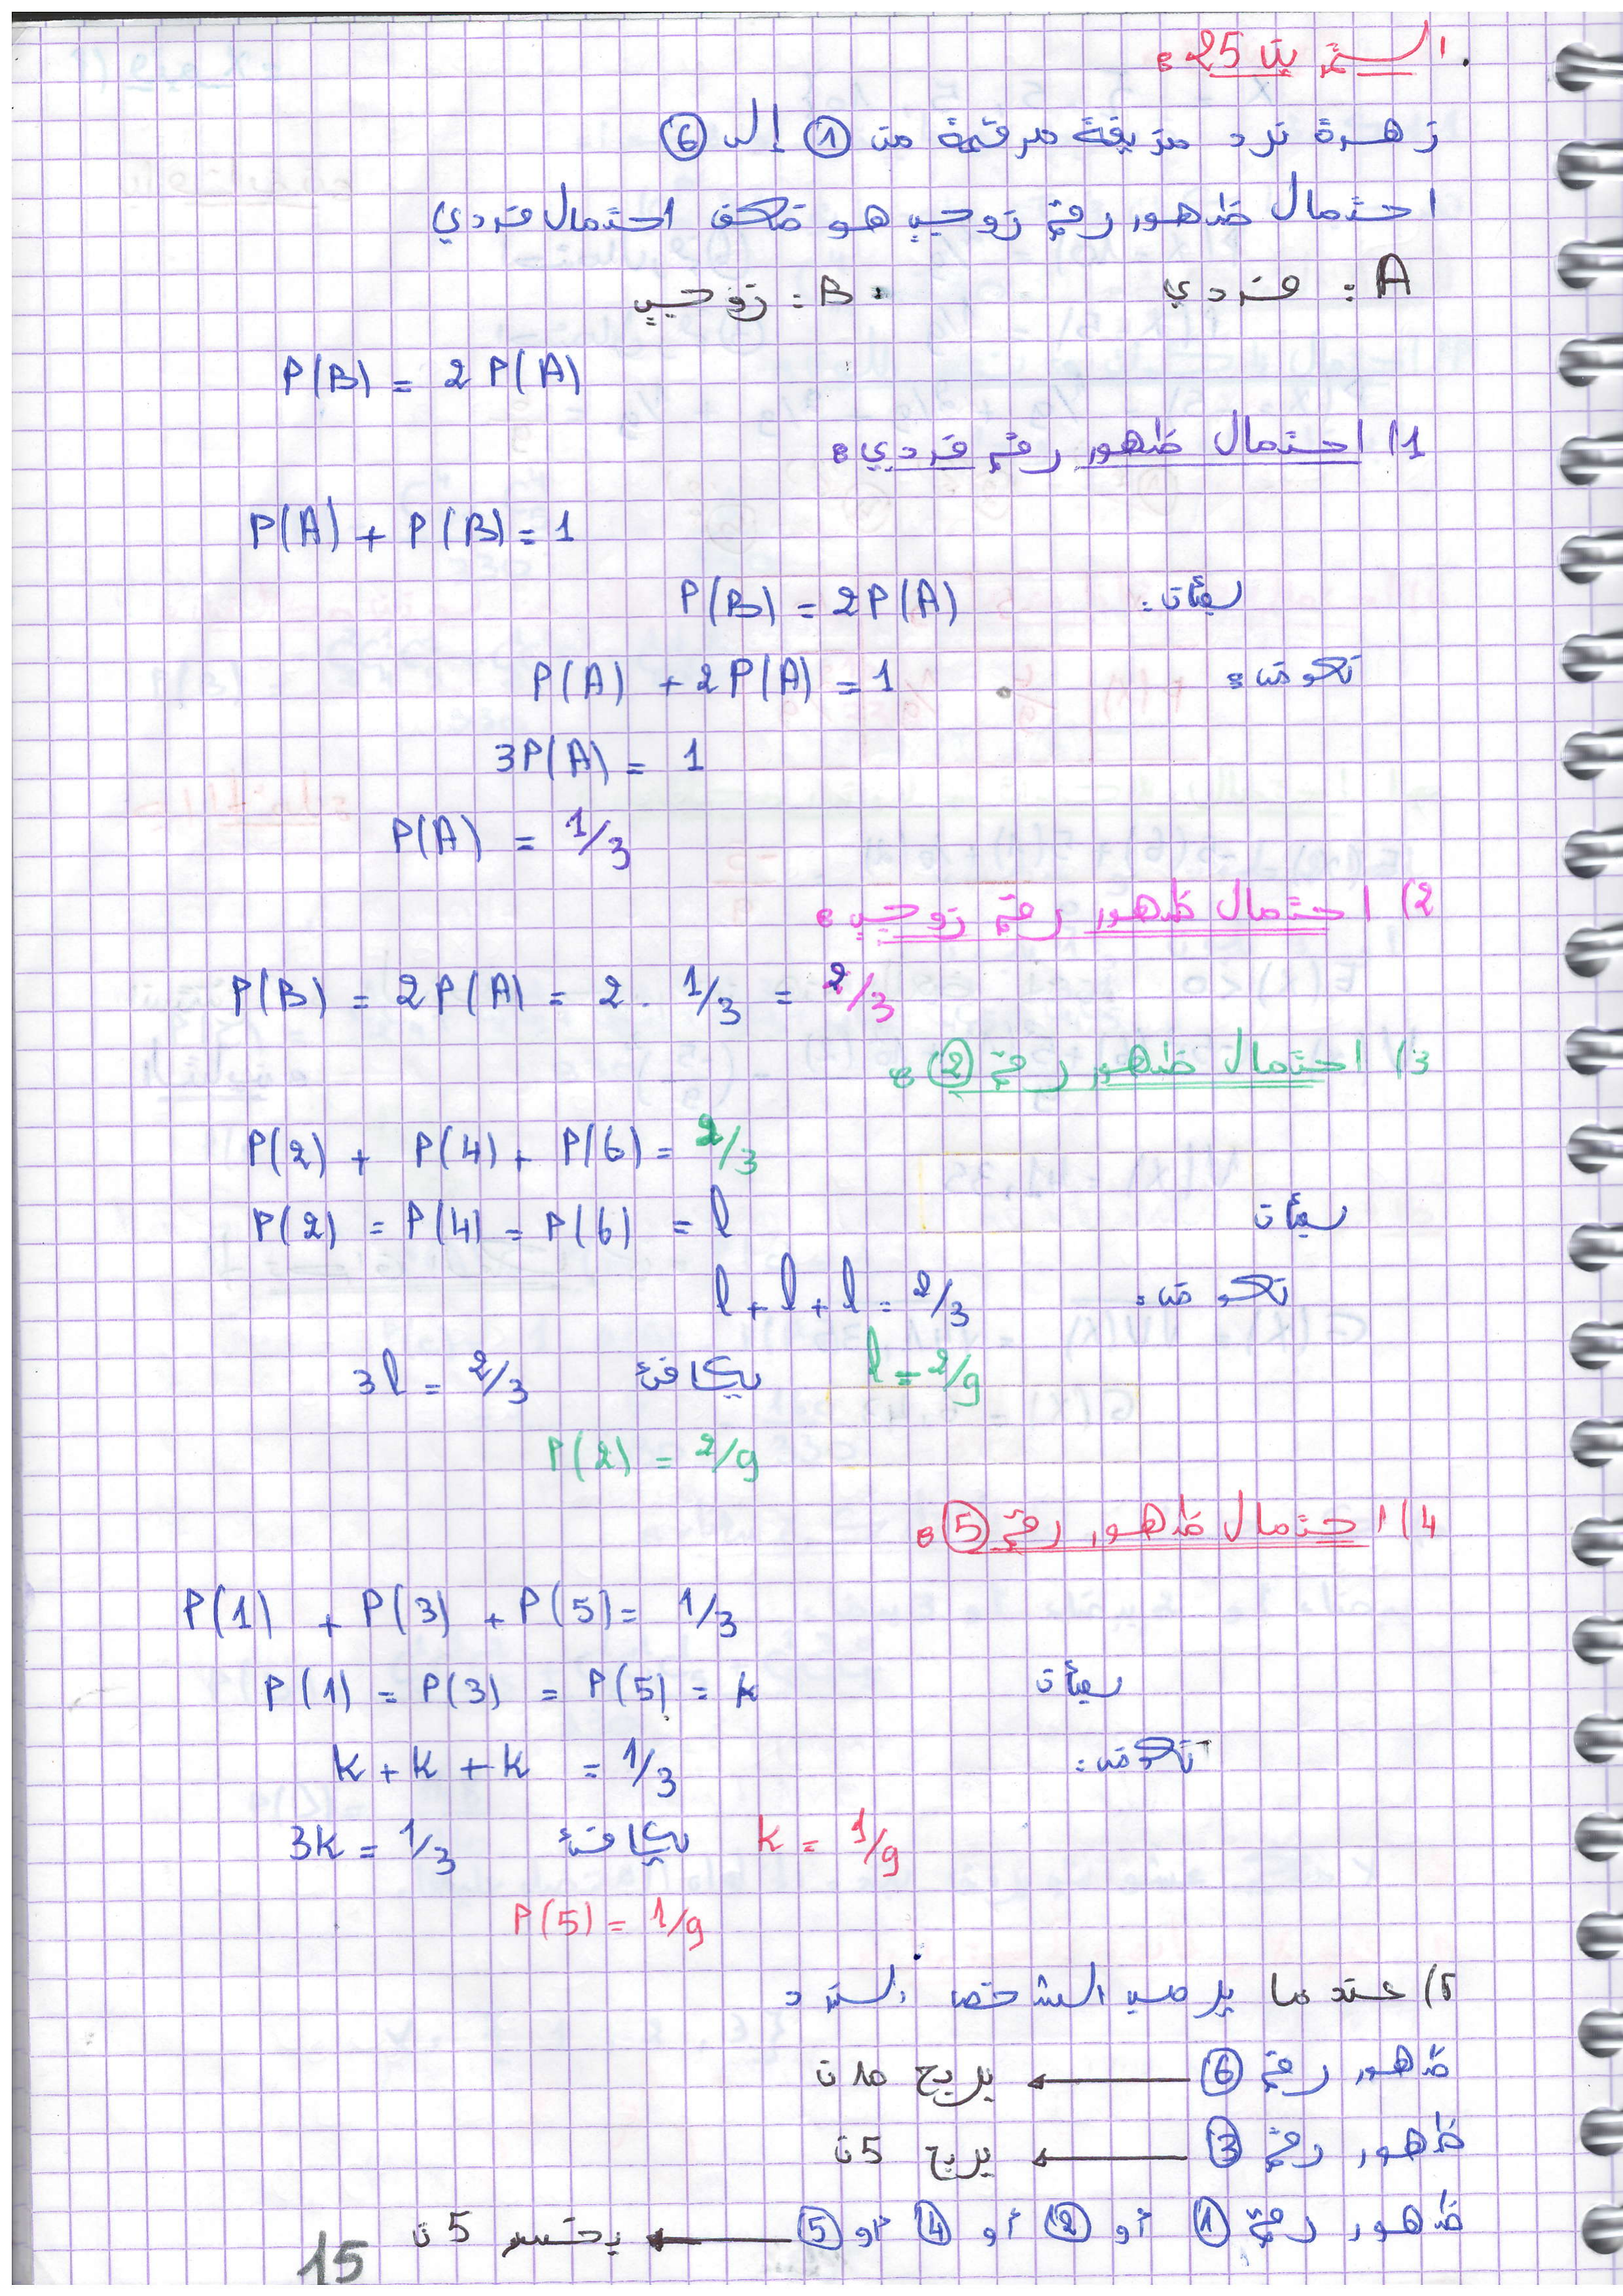 التمرين 25:
زهرة نرد مزيفة مرقمة من ① إلى ⑥
احتمال ظهور رقم زوجي هو ضعف احتمال فردي
A: فردي B: زوجي
P(B) = 2P(A)
1) احتمال ظهور رقم فردي:
P(A) + P(B) = 1
بمأن: P(B) = 2P(A)
تكون: P(A) + 2P(A) = 1
3P(A) = 1
P(A) = 1/3
2) احتمال ظهور رقم زوجي:
P(B) = 2P(A) = 2 . 1/3 = 2/3
3) احتمال ظهور رقم ②:
P(2) + P(4) + P(6) = 2/3
بمأن P(2) = P(4) = P(6) = l
تكون: l + l + l = 2/3
3l = 2/3 يكافئ l = 2/9
P(2) = 2/9
4) احتمال ظهور رقم ⑤:
P(1) + P(3) + P(5) = 1/3
بمأن P(1) = P(3) = P(5) = k
تكون: k + k + k = 1/3
3k = 1/3 يكافئ k = 1/9
P(5) = 1/9
5) عندما يرمي الشخص النرد
ظهور رقم ⑥ ← يربح 10ن
ظهور رقم ③ ← يربح 5ن
ظهور رقم ① أو ② أو ④ أو ⑤ ← يخسر 5ن
15